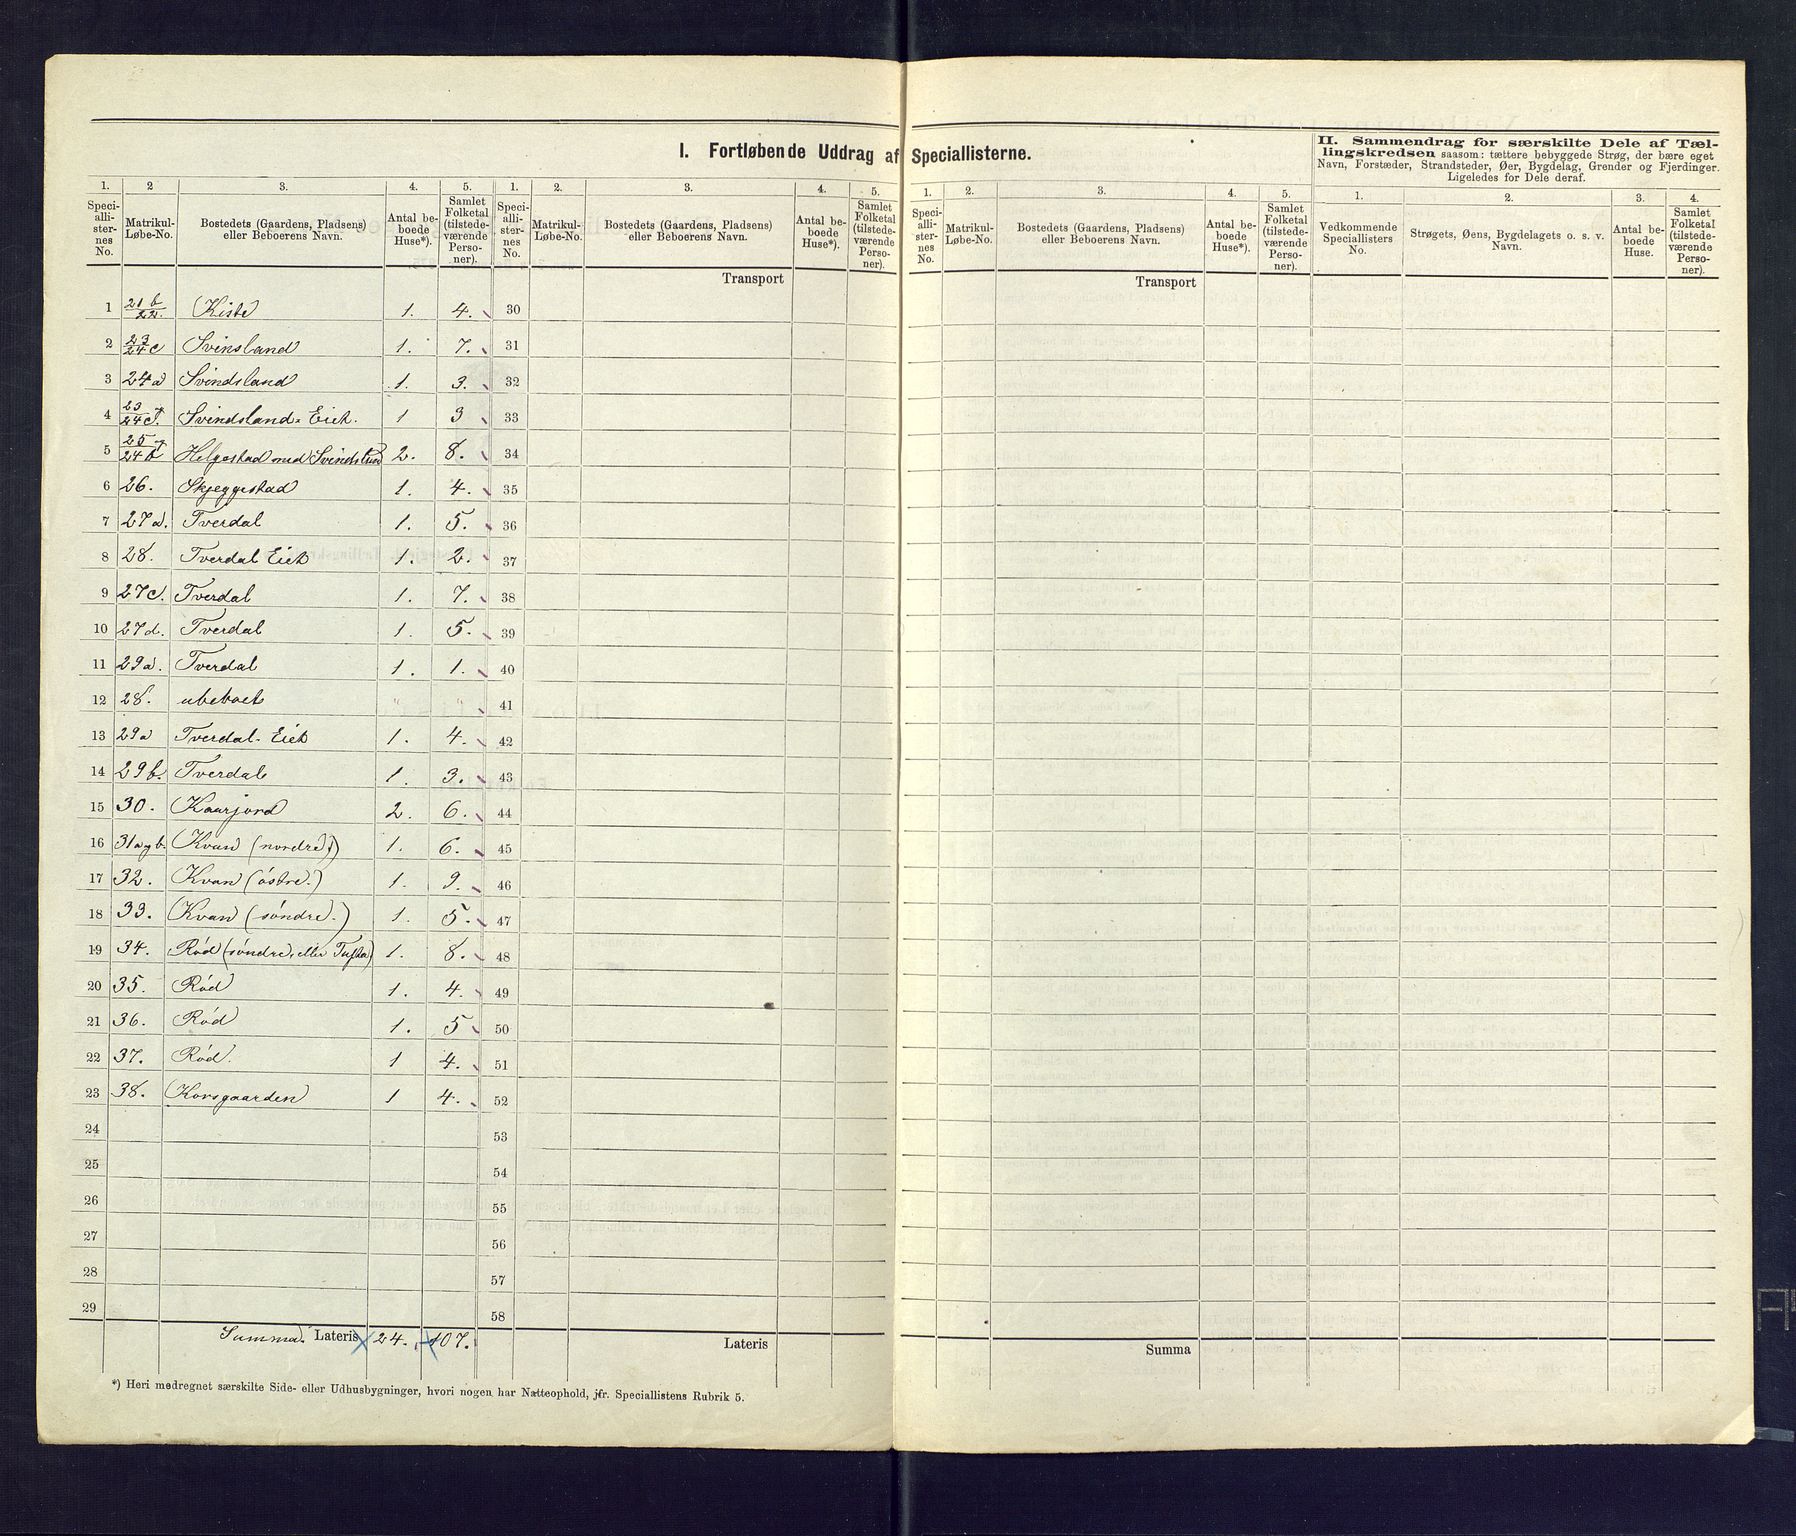 I. Fortløbende Uddrag af Speciallisterne.
II. Sammendrag for særskilte Dele af Tællingskredsen saasom: tættere bebyggede Strøg, der bære eget
Navn, Forstæder, Strandsteder, Øer, Bygdelag, Grender og Fjerdinger.
Ligeledes for Dele deraf.
1. 2 3. 4. 5. 1. 2. 3. 4. 5. 1. 2. 3. 4. 5. 1. 2. 3. 4.
Speciallisternes No. Matrikul-Løbe-No. Bostedets (Gaardens, Pladsens) eller Beboerens Navn. Antal beboede Huse*). Samlet Folketal (tilstedeværende Personer).
Speciallisternes No. Matrikul-Løbe-No. Bostedets (Gaardens, Pladsens) eller Beboerens Navn. Antal beboede Huse*). Samlet Folketal (tilstedeværende Personer).
Speciallisternes No. Matrikul-Løbe-No. Bostedets (Gaardens, Pladsens) eller Beboerens Navn. Antal beboede Huse*). Samlet Folketal (tilstedeværende Personer).
Vedkommende Speciallisters No. Strøgets, Øens, Bygdelagets o. s. v. Navn. Antal beboede Huse. Samlet Folketal (tilstedeværende Personer).
Transport Transport
1 21b/22. Kiste 1. 4. 30
2 23/24c Svinsland 1. 7. 31
3 24a Svindsland 1. 3. 32
4 23/24c. Svindsland-Eiet. 1 3 33
5 25/24b Helgestad med Svindslund 2. 8. 34
6 26. Skjeggestad 1. 4. 35
7 27a. Tverdal 1. 5. 36
8 28. Tverdal Eiet 1. 2. 37
9 27c. Tverdal 1. 7. 38
10 27d. Tverdal 1. 5. 39
11 29a. Tverdal 1. 1. 40
12 28. ubeboet " " 41
13 29a Tverdal-Eiet 1. 4. 42
14 29b. Tverdal 1. 3. 43
15 30. Kaarjord 2. 6. 44
16 31a og b. Kvan (nordre.) 1. 6. 45
17 32. Kvan (østre.) 1. 9. 46
18 33. Kvan (søndre.) 1. 5. 47
19 34. Rød (søndre, eller Tufta) 1. 8. 48
20 35. Rød 1. 4. 49
21 36. Rød 1. 5 50
22 37. Rød. 1 4. 51
23 38. Korsgaarden 1 4. 52
24 53
25 54
26 55
27 56
28 57
29 58
Summa. Lateris 24. 107. Lateris Summa
*) Heri medregnet særskilte Side- eller Udhusbygninger, hvori nogen har Natteophold, jfr. Speciallistens Rubrik 5.